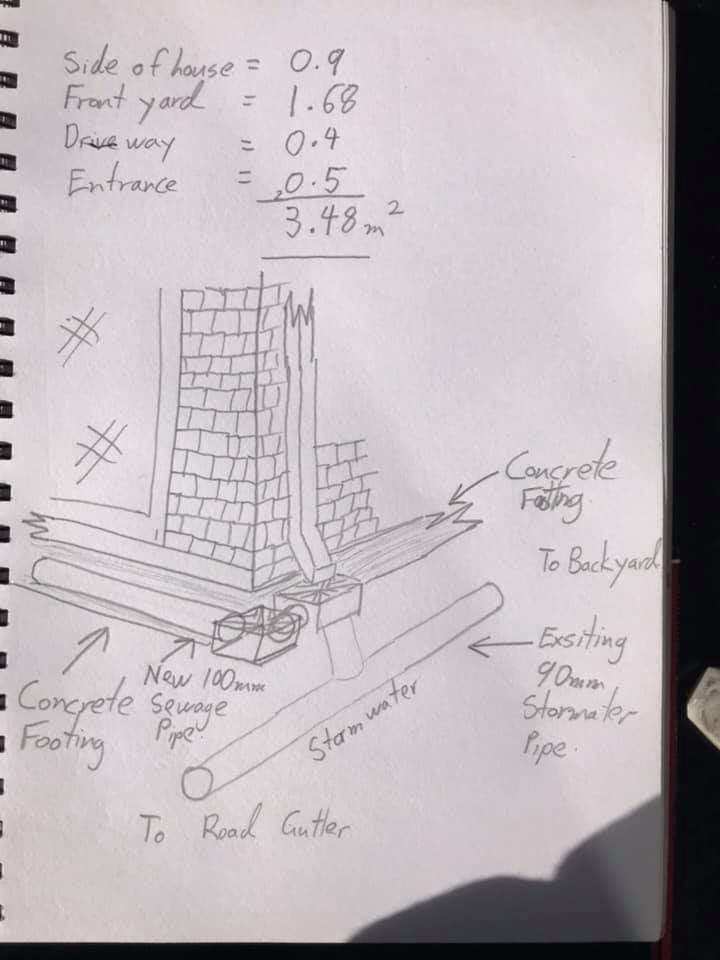 Side of house = 0.9
Front yard = 1.68
Driveway = 0.4
Entrance = 0.5
3.48m²
Concrete
Footing
To Backyard
Exsiting
90mm
Stormwater
Pipe.
New 100mm
Sewage
Pipe.
Concrete
Footing
Stormwater
To Road Gutter